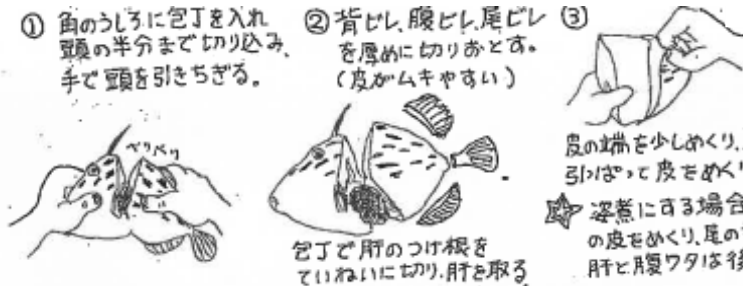 ① 角のうしろに包丁を入れ
頭の半分まで切り込み、
手で頭を引きちぎる。
ベリベリ
② 背ビレ、腹ビレ、尾ビレ
を厚めに切りおとす。
(皮がムキやすい)
包丁で肝のつけ根を
ていねいに切り、肝を取る
③
皮の端を少しめくり、
引っぱって皮をめくり
☆ 姿煮にする場合
の皮をめくり、尾の
肝と腹ワタは後